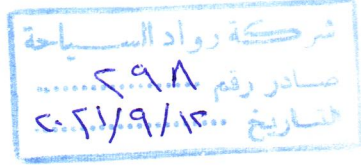 شركة رواد السياحة
صادر رقم ٢٩٨
التاريخ ٢٠٢١/٩/١٢